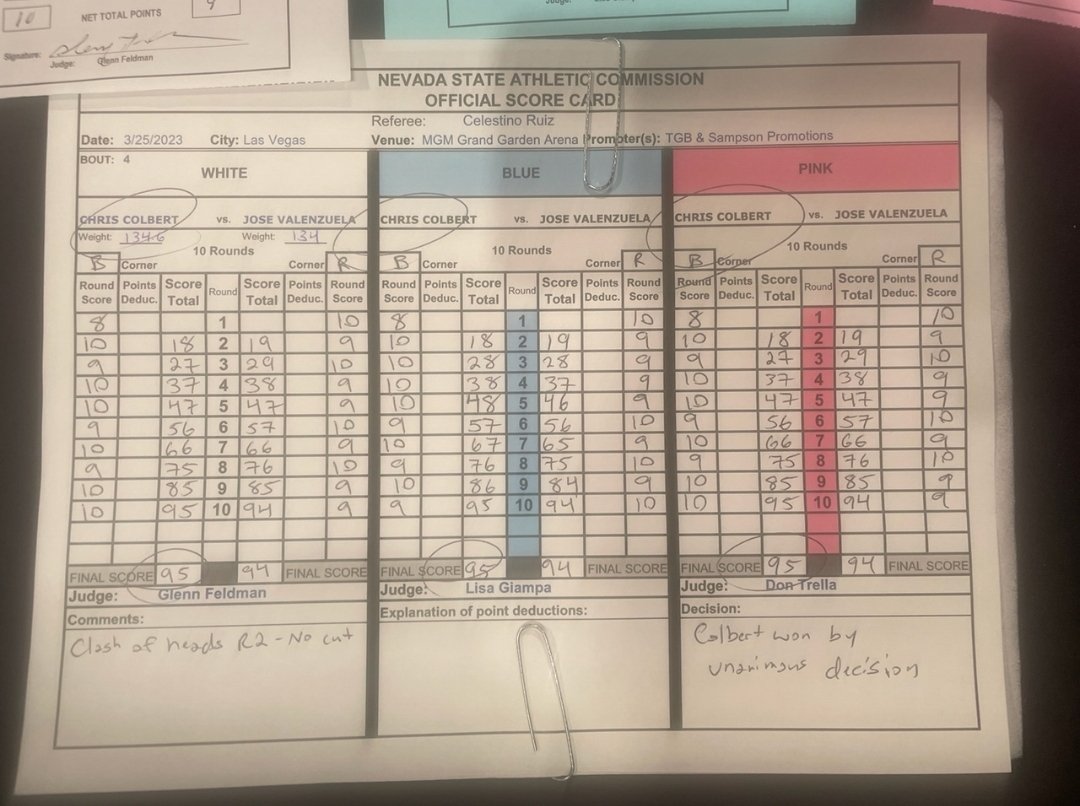 10 NET TOTAL POINTS 9
Signature:
Judge: Glenn Feldman
Judge:
NEVADA STATE ATHLETIC COMMISSION
OFFICIAL SCORE CARD
Referee: Celestino Ruiz
Date: 3/25/2023 City: Las Vegas Venue: MGM Grand Garden Arena Promoter(s): TGB & Sampson Promotions
BOUT: 4
WHITE BLUE PINK
CHRIS COLBERT vs. JOSE VALENZUELA CHRIS COLBERT vs. JOSE VALENZUELA CHRIS COLBERT vs. JOSE VALENZUELA
Weight: 134.6 Weight: 134
10 Rounds 10 Rounds 10 Rounds
B Corner Corner R B Corner Corner R B Corner Corner R
Round Points Score Round Score Points Round Round Points Score Round Score Points Round Round Points Score Round Score Points Round
Score Deduc. Total Total Deduc. Score Score Deduc. Total Total Deduc. Score Score Deduc. Total Total Deduc. Score
8 1 10 8 1 10 8 1 10
10 18 2 19 9 10 18 2 19 9 10 18 2 19 9
9 27 3 29 10 10 28 3 28 9 9 27 3 29 10
10 37 4 38 9 10 38 4 37 9 10 37 4 38 9
10 47 5 47 9 10 48 5 46 9 10 47 5 47 9
9 56 6 57 10 9 57 6 56 10 9 56 6 57 10
10 66 7 66 9 10 67 7 65 9 10 66 7 66 9
9 75 8 76 10 9 76 8 75 10 9 75 8 76 10
10 85 9 85 9 10 86 9 84 9 10 85 9 85 9
10 95 10 94 9 9 95 10 94 10 10 95 10 94 9
FINAL SCORE 95 94 FINAL SCORE FINAL SCORE 95 94 FINAL SCORE FINAL SCORE 95 94 FINAL SCORE
Judge: Glenn Feldman Judge: Lisa Giampa Judge: Don Trella
Comments: Explanation of point deductions: Decision:
Clash of heads R2 - No cut
Colbert won by
unanimous decision